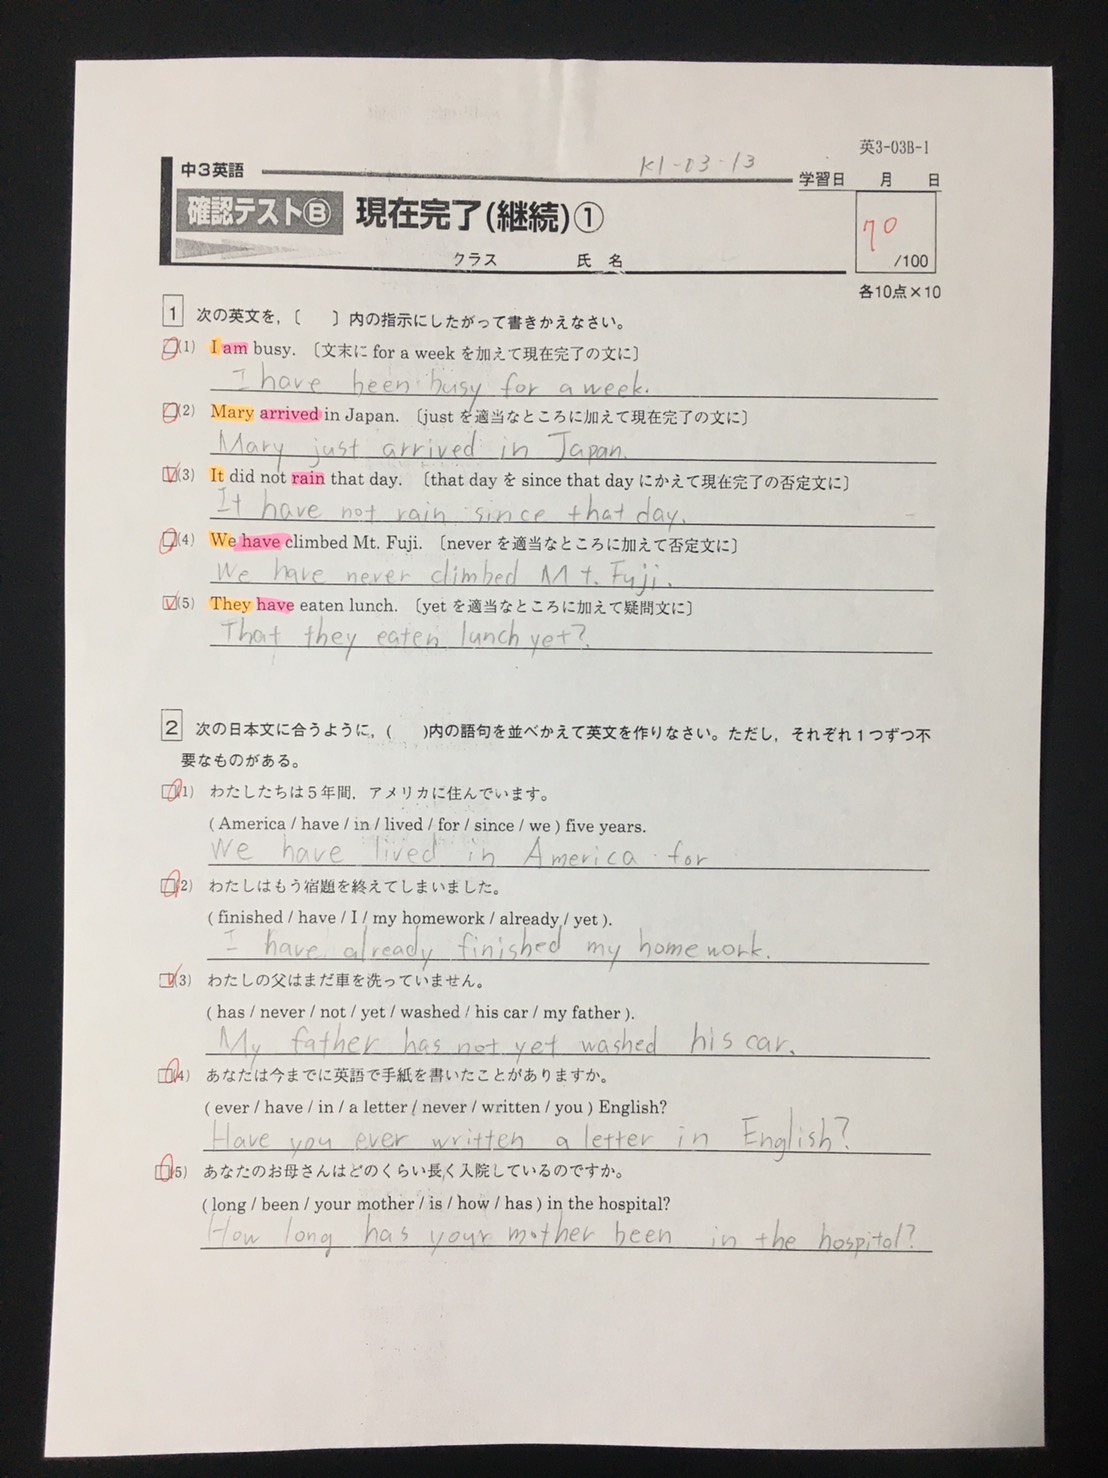 英3-03B-1
K1-03-13
中3英語
学習日 月 日
確認テストⒷ 現在完了(継続)①
70
/100
クラス 氏名
各10点×10
1 次の英文を，〔 〕内の指示にしたがって書きかえなさい。
(1) I am busy. 〔文末に for a week を加えて現在完了の文に〕
I have been busy for a week.
(2) Mary arrived in Japan. 〔just を適当なところに加えて現在完了の文に〕
Mary just arrived in Japan.
(3) It did not rain that day. 〔that day を since that day にかえて現在完了の否定文に〕
It have not rain since that day.
(4) We have climbed Mt. Fuji. 〔never を適当なところに加えて否定文に〕
We have never climbed Mt. Fuji.
(5) They have eaten lunch. 〔yet を適当なところに加えて疑問文に〕
That they eaten lunch yet?
2 次の日本文に合うように，( )内の語句を並べかえて英文を作りなさい。ただし，それぞれ1つずつ不
要なものがある。
(1) わたしたちは5年間，アメリカに住んでいます。
( America / have / in / lived / for / since / we ) five years.
We have lived in America for
(2) わたしはもう宿題を終えてしまいました。
( finished / have / I / my homework / already / yet ).
I have already finished my homework.
(3) わたしの父はまだ車を洗っていません。
( has / never / not / yet / washed / his car / my father ).
My father has not yet washed his car.
(4) あなたは今までに英語で手紙を書いたことがありますか。
( ever / have / in / a letter / never / written / you ) English?
Have you ever written a letter in English?
(5) あなたのお母さんはどのくらい長く入院しているのですか。
( long / been / your mother / is / how / has ) in the hospital?
How long has your mother been in the hospital?